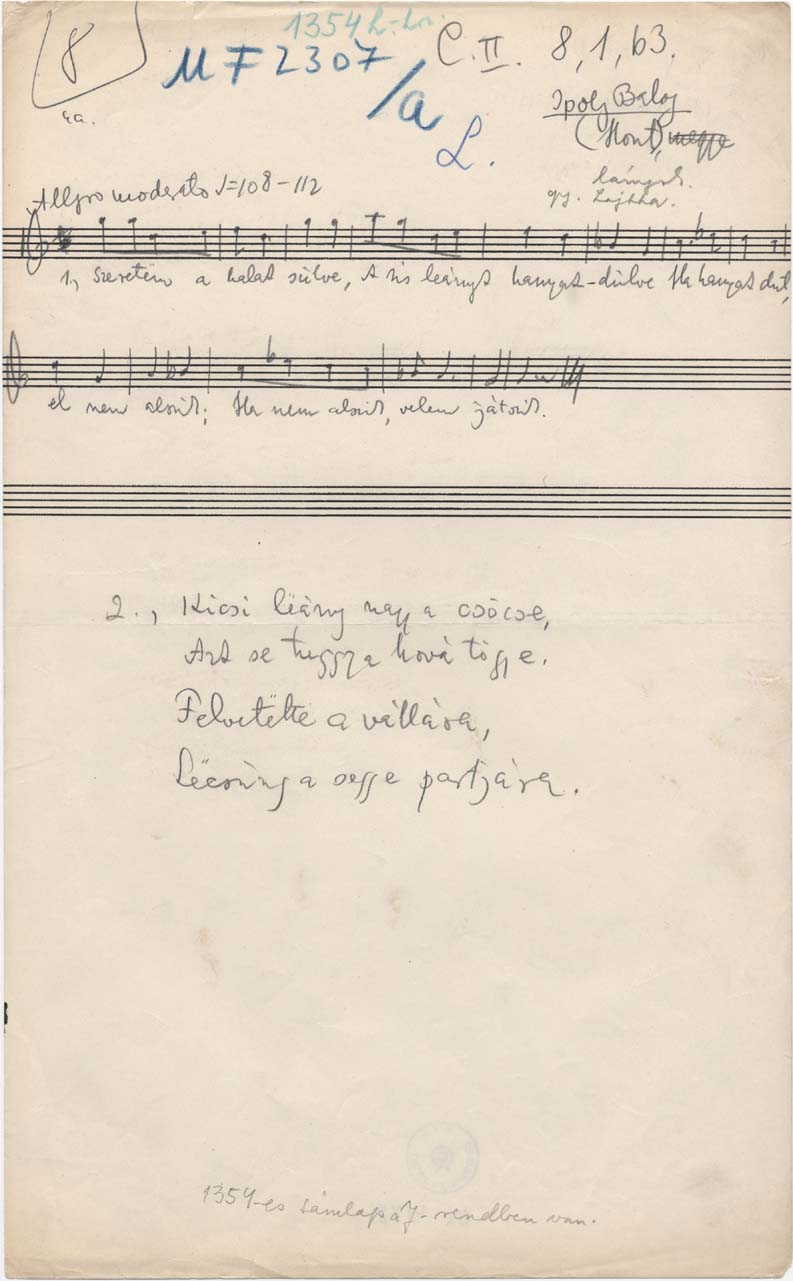 8
1354
MF 2307
/a
C. II. 8, 1, b3.
Ipoly Balog
(Hont)
L.
lányok.
gy. Lajtha.
Allegro moderato ♩=108-112
1, Szeretëm a halat sülve, A kis leányt hanyat-dülve Ha hanyat dül,
el nem alszik; Ha nem alszik, velem játszik.
2., Kicsi lëány nagy a csöcse,
Azt se tuggya hová tögye.
Felvetëtte a vállára,
Lëcsüng a segge partjára.
1354-es támlap áf-rendben van.